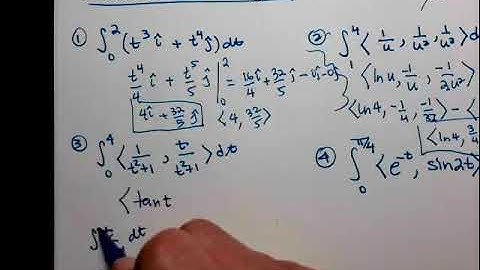 ① ∫₀² (t³ î + t⁴ ĵ) dt
t⁴/4 î + t⁵/5 ĵ |₀² = 16/4 î + 32/5 ĵ - 0î - 0ĵ
4î + 32/5 ĵ ⟨4, 32/5⟩
② ∫₁⁴ ⟨1/u, 1/u², 1/u³⟩ d
⟨ln u, -1/u, -1/2u²⟩
⟨ln4, -1/4, -1/32⟩ - ⟨
⟨ln4, 3/4
③ ∫₀⁴ ⟨1/t²+1, t/t²+1⟩ dt
⟨tan t
∫ dt
④ ∫₀^π/4 ⟨e⁻ᵗ, sin2t⟩